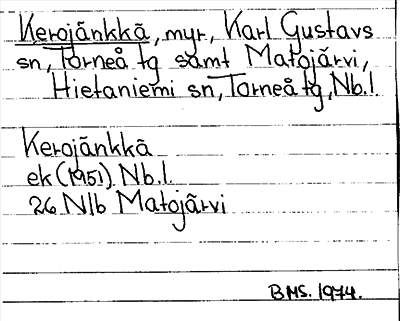 Kerojänkkä, myr, Karl Gustavs
sn, Torneå tg samt Matojärvi,
Hietaniemi sn, Torneå tg, Nb.l.
Kerojänkkä
ek (1951) Nb.l.
26 N/b Matojärvi
BMS. 1974.